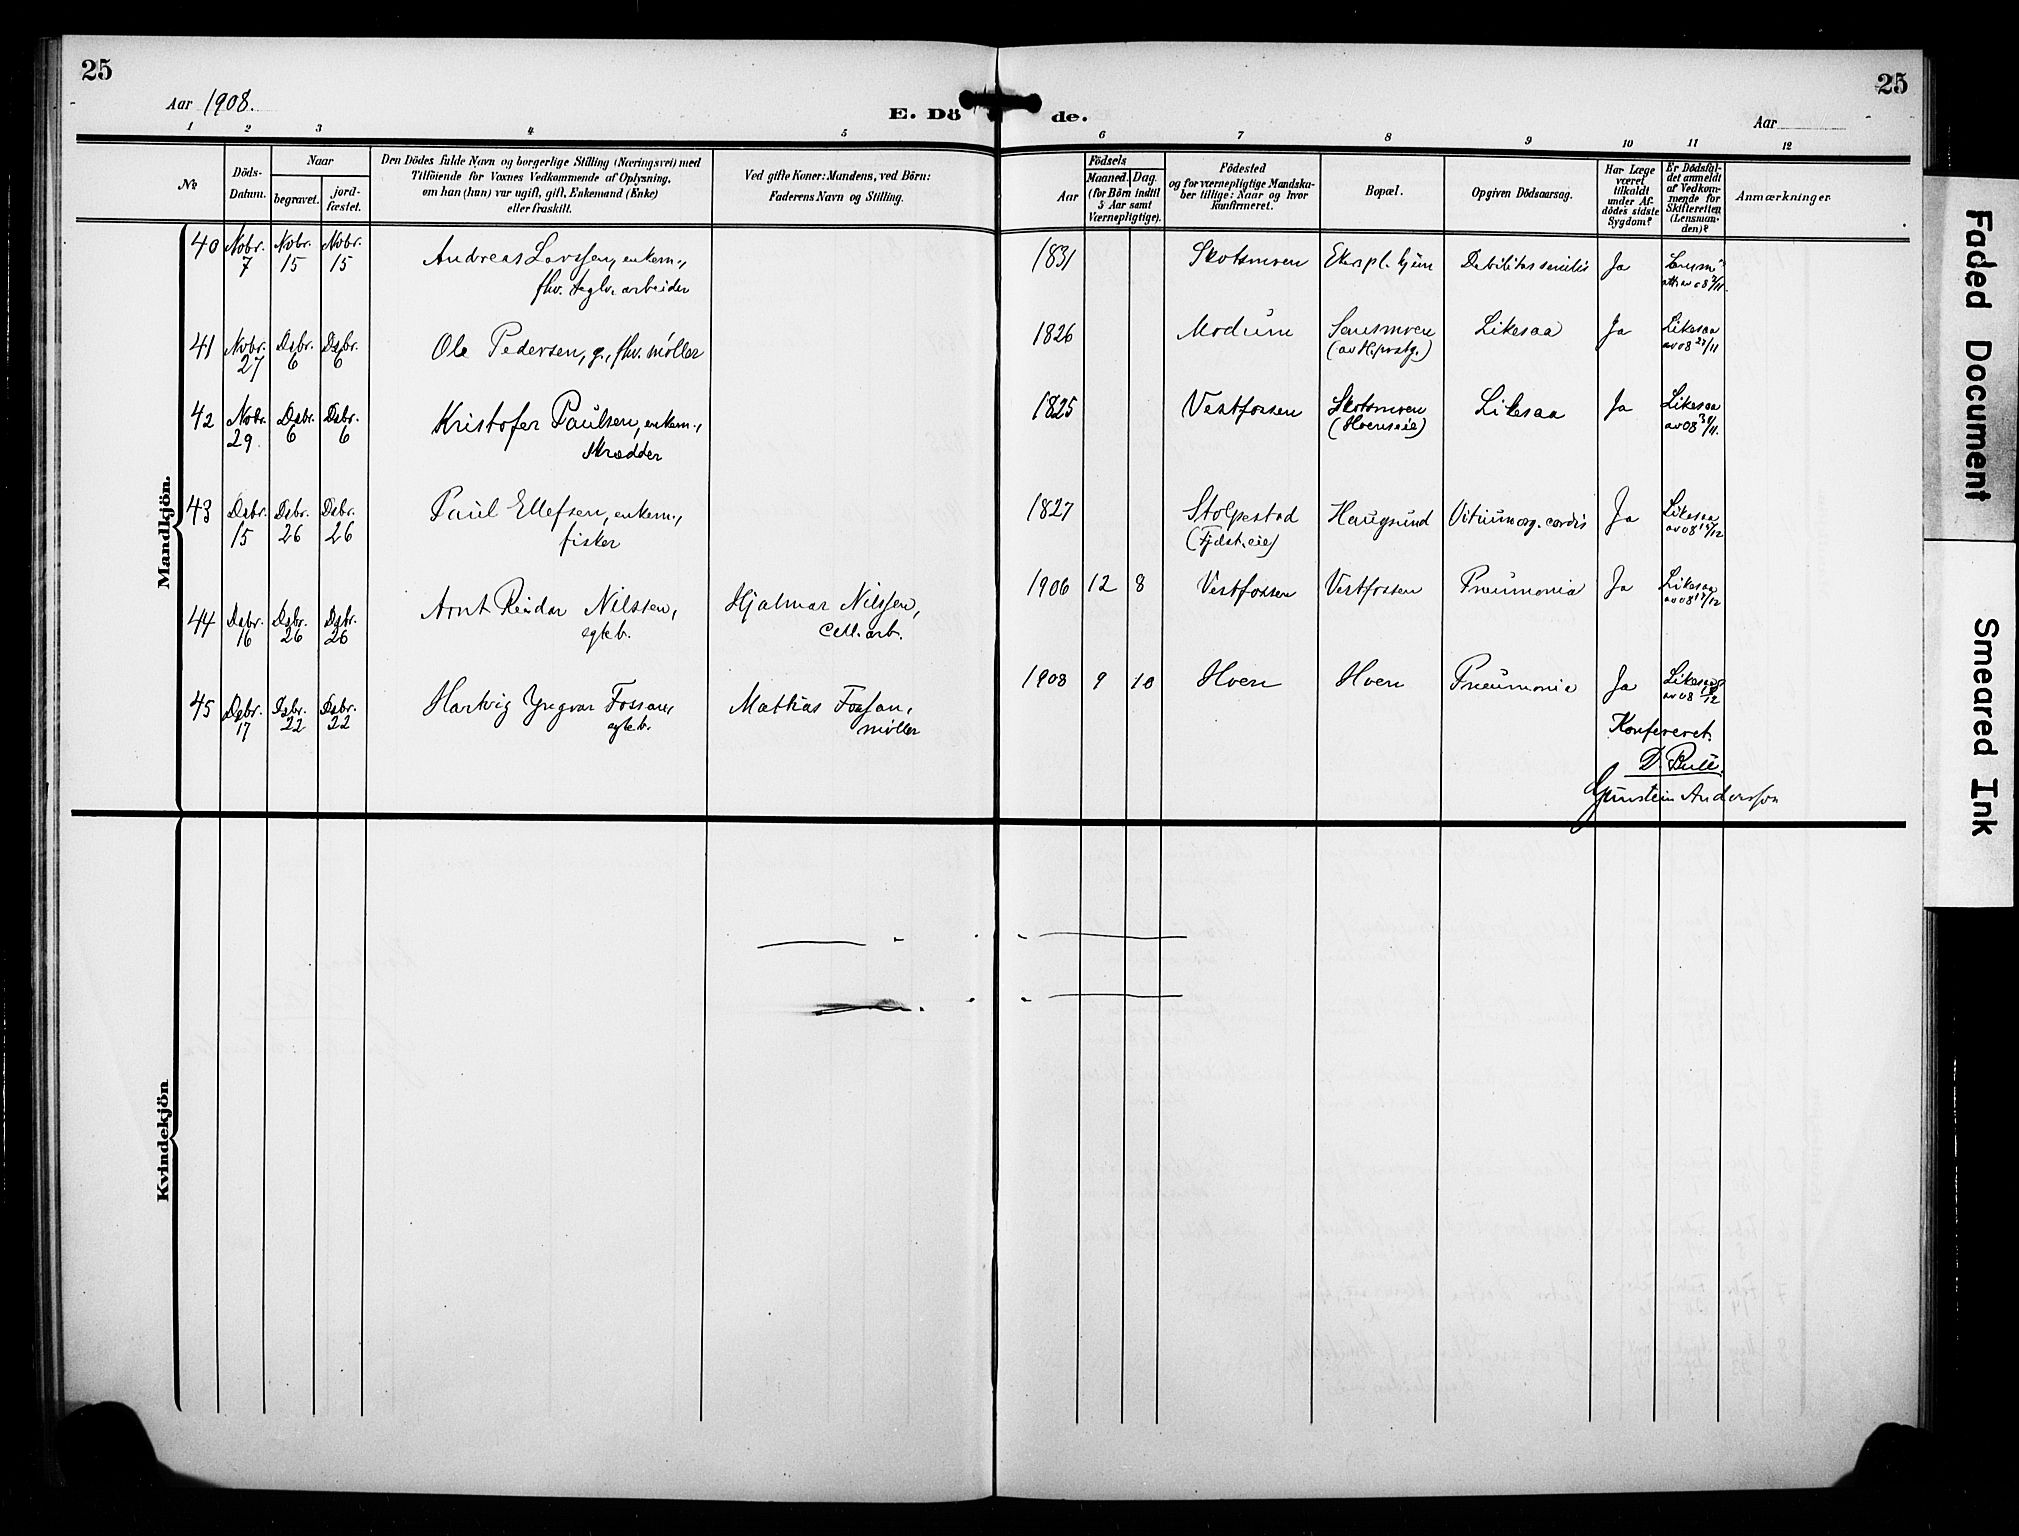 25
25
Aar 1908.
E. Dö de.
Aar
1 2 3 4 5 6 7 8 9 10 11 12
No
Döds-
Datum.
Naar
begravet.
jord-
fæstet.
Den Dödes fulde Navn og borgerlige Stilling (Næringsvei) med
Tilföiende for Voxnes Vedkommende af Oplysning,
om han (hun) var ugift, gift, Enkemand (Enke)
eller fraskilt.
Ved gifte Koner: Mandens, ved Börn:
Faderens Navn og Stilling.
Födsels
Aar
Maaned. Dag.
(for Börn indtil
5 Aar samt
Værnepligtige).
Födested
og for værnepligtige Mandska-
ber tillige: Naar og hvor
konfirmeret.
Bopæl.
Opgiven Dödsaarsag.
Har Læge
været
tilkaldt
under Af-
dödes sidste
Sygdom?
Er Dödsfal-
det anmeldt
af Vedkom-
mende for
Skifteretten
(Lensman-
den)?
Anmærkninger
Mandkjön.
40 Nobr. 7 Nobr. 15 Nobr. 15 Andreas Larssen, enkem.,
fhv. teglv. arbeider
1831 Skotsmoen Ekerspl. hjem Debilitas senilis Ja
41 Nobr. 27 Dsbr. 6 Dsbr. 6 Ole Pedersen, g., fhv. møller
1826 Modum Likesaa Ja Likesaa
av 08 27/11
42 Nobr. 29 Dsbr. 6 Dsbr. 6 Kristofer Paulsen, enkem.,
skrædder
1825 Vestfossen Skotsmoen
(Hoenseie) Likesaa Ja Likesaa
av 08 30/11.
43 Dsbr. 15 Dsbr. 26 Dsbr. 26 Paul Ellefsen, enkem.,
fisker
1827 Stolpestad Haugsund Vitium org. cordis Ja Likesaa
44 Dsbr. 16 Dsbr. 26 Dsbr. 26 Arnt Reidar Nilssen,
egteb.
Hjalmar Nilssen,
Cell. arb.
1906 12 8 Vestfossen Vestfossen Pneumonia Ja Likesaa
45 Dsbr. 17 Dsbr. 22 Dsbr. 22 Hartvig Yngvar Fossan,
egteb.
Mathias Fossan,
møller
1908 9 10 Hoen Hoen Pneumonia Ja Likesaa
Konfereret.
D. Bull.
Gunstein Anderssen
Kvindekjön
Faded Document
Smeared Ink